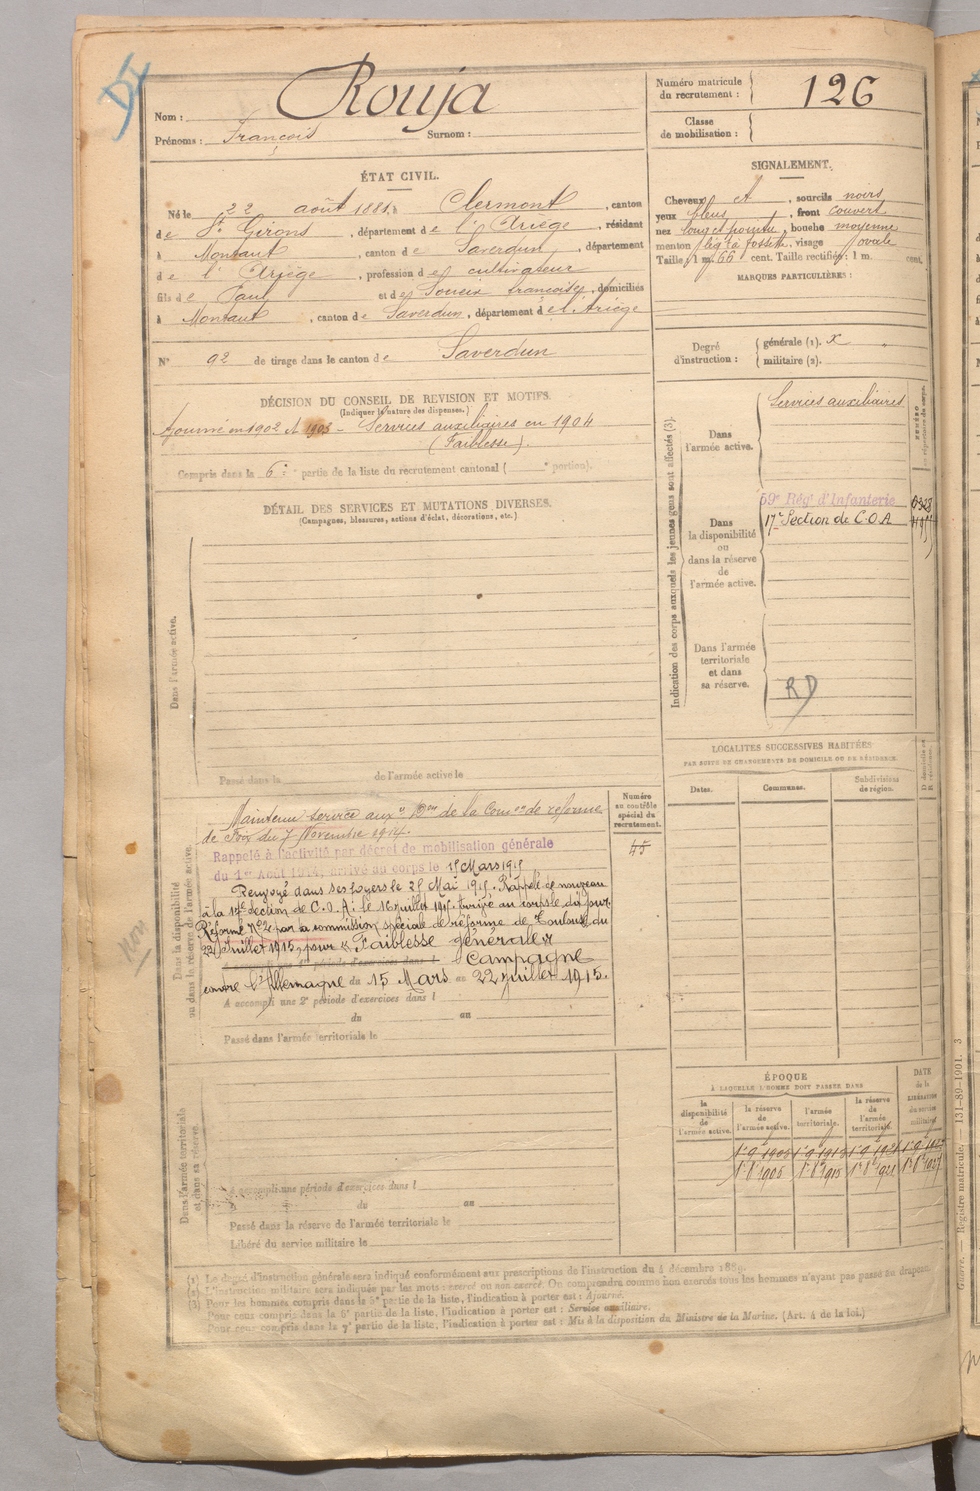 Rouja
Nom :
Prénoms : François Surnom :
Numéro matricule
du recrutement : 126
Classe
de mobilisation :
ÉTAT CIVIL.
Né le 22 août 1881, à Clermont, canton
de St Girons, département de l'Ariège, résidant
à Montaut, canton de Saverdun, département
de l'Ariège, profession de cultivateur
fils de Paul et de Soueix françoise, domiciliés
à Montaut, canton de Saverdun, département de l'Ariège
N° 92 de tirage dans le canton de Saverdun
SIGNALEMENT.
Cheveux et, sourcils noirs
yeux bleus, front couvert
nez long et pointu, bouche moyenne
menton à fossette, visage ovale
Taille : 1 m. 66 cent. Taille rectifiée : 1 m. cent.
MARQUES PARTICULIÈRES :
Degré
d'instruction :
générale (1). x
militaire (2).
DÉCISION DU CONSEIL DE REVISION ET MOTIFS.
(Indiquer la nature des dispenses.)
Ajourné en 1902 et 1903 - Services auxiliaires en 1904
(Faiblesse).
Compris dans la 6e partie de la liste du recrutement cantonal ( e portion).
DÉTAIL DES SERVICES ET MUTATIONS DIVERSES.
(Campagnes, blessures, actions d'éclat, décorations, etc.)
Dans l'armée active.
Passé dans la de l'armée active le
Indication des corps auxquels les jeunes gens sont affectés (3).
Dans
l'armée active.
Services auxiliaires
Dans
la disponibilité
ou
dans la réserve
de
l'armée active.
59e Régt d'Infanterie
17e Section de C.O.A
Dans l'armée
territoriale
et dans
sa réserve.
RD
LOCALITÉS SUCCESSIVES HABITÉES
PAR SUITE DE CHANGEMENTS DE DOMICILE OU DE RÉSIDENCE.
Dates.
Communes.
Subdivisions
de région.
Dans la disponibilité
ou dans la réserve de l'armée active.
Non
Numéro
au contrôle
spécial du
recrutement.
45
Maintenu service auxre Don de la Comon de réforme
de Foix du 7 Novembre 1914.
Rappelé à l'activité par décret de mobilisation générale
du 1er Août 1914, arrivé au corps le 15 Mars 1915
Renvoyé dans ses foyers le 25 Mai 1915. Rappelé de nouveau
à la 17e Section de C.O.A. le 16 juillet 1915. Arrivé au corps le dit jour.
Réformé N°2 par la commission spéciale de réforme de Toulouse du
22 Juillet 1915, pour « Faiblesse générale »
A accompli une 1re période d'exercices dans l Campagne
contre l'Allemagne du 15 Mars au 22 juillet 1915.
A accompli une 2e période d'exercices dans l
du au
Passé dans l'armée territoriale le
Dans l'armée territoriale
et dans sa réserve.
A accompli une période d'exercices dans l
du au
Passé dans la réserve de l'armée territoriale le
Libéré du service militaire le
ÉPOQUE
À LAQUELLE L'HOMME DOIT PASSER DANS
DATE
de la
LIBÉRATION
du service
militaire.
la
disponibilité
de
l'armée active.
la réserve
de
l'armée active.
l'armée
territoriale.
la réserve
de
l'armée
territoriale.
1er 8bre 1905 1er 8bre 1915 1er 8bre 1921 1er 8bre 1927
(1) Le degré d'instruction générale sera indiqué conformément aux prescriptions de l'instruction du 4 décembre 1889.
(2) L'instruction militaire sera indiquée par les mots : exercé ou non exercé. On comprendra comme non exercés tous les hommes n'ayant pas passé au drapeau.
(3) Pour les hommes compris dans la 5e partie de la liste, l'indication à porter est : Ajourné.
Pour ceux compris dans la 6e partie de la liste, l'indication à porter est : Service auxiliaire.
Pour ceux compris dans la 7e partie de la liste, l'indication à porter est : Mis à la disposition du Ministre de la Marine. (Art. 4 de la loi.)
Guerre. — Registre matricule. — 131-89-1901. 3